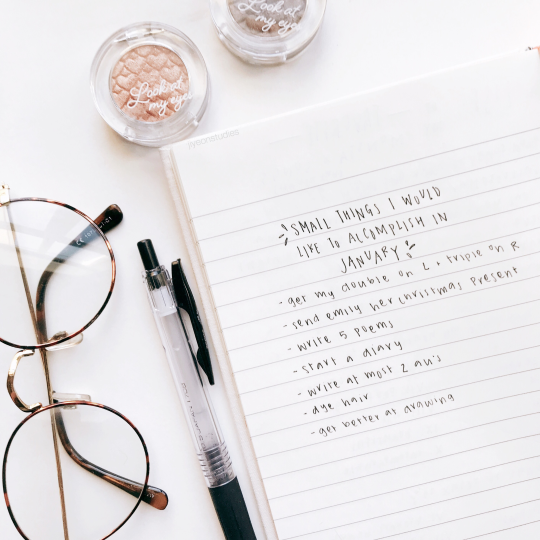 Look at
my eyes
Look at
my eyes
SMALL THINGS I WOULD
LIKE TO ACCOMPLISH IN
JANUARY
- get my double on L + triple on R
- send emily her christmas present
- write 5 poems
- start a diary
- write at most 2 au's
- dye hair
- get better at drawing